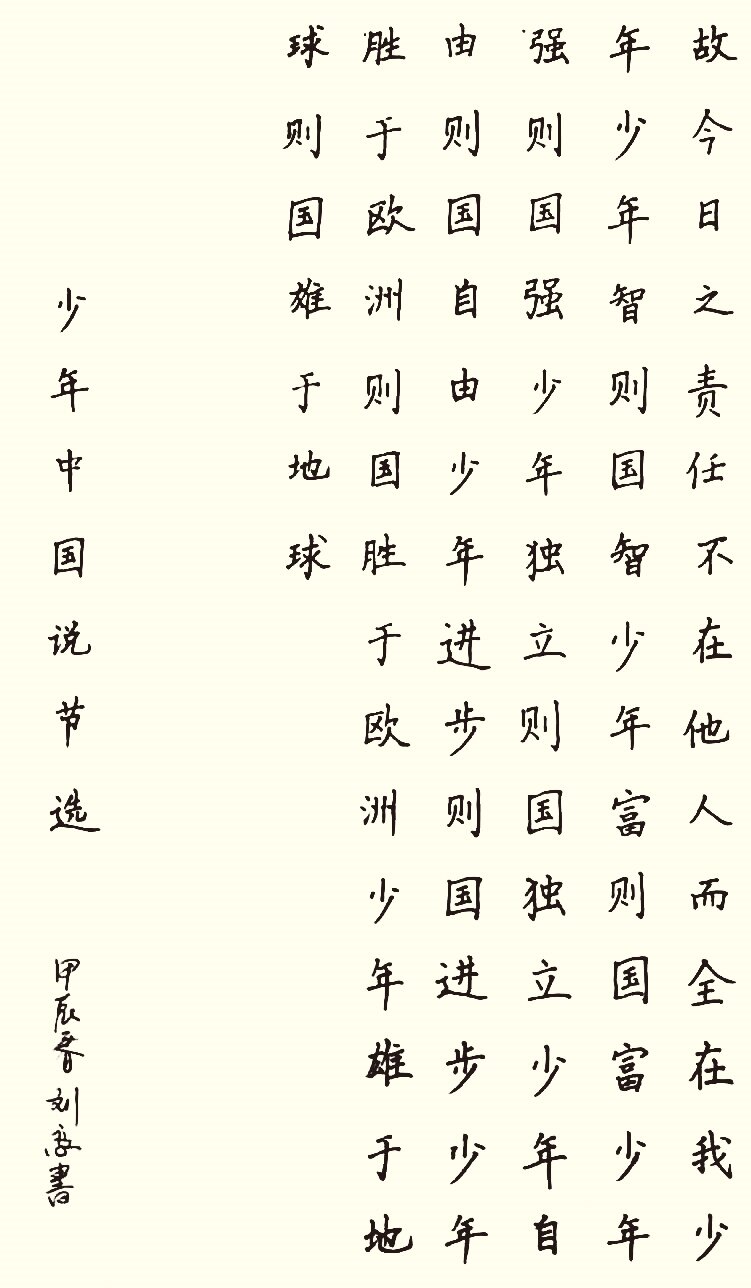 故今日之责任不在他人而全在我少
年少年智则国智少年富则国富少年
强则国强少年独立则国独立少年自
由则国自由少年进步则国进步少年
胜于欧洲则国胜于欧洲少年雄于地
球则国雄于地球
少年中国说节选
甲辰春刘书